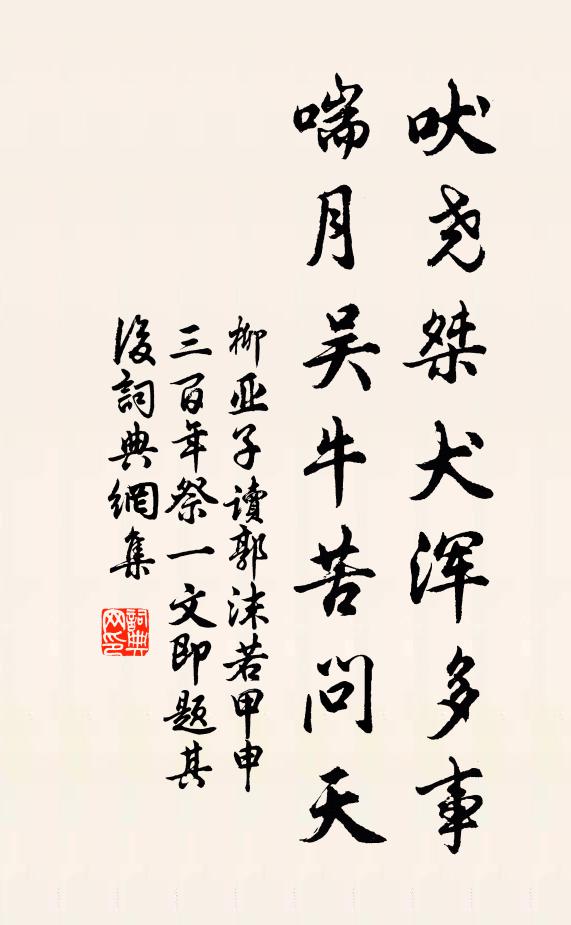 吠尧桀犬浑多事
喘月吴牛苦问天
柳亚子读郭沫若甲申
三百年祭一文即题其
後詞典網集
詞典
网印